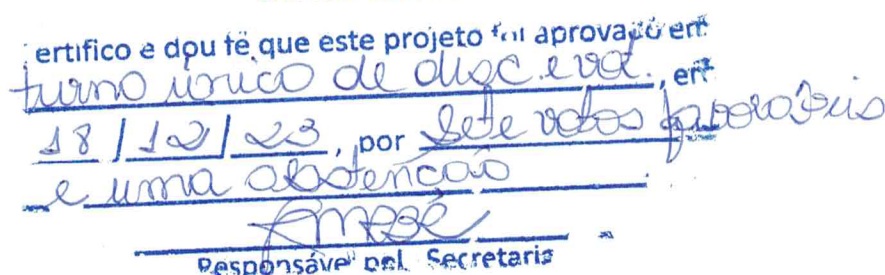 ertifico e dou fé que este projeto foi aprovado em
turno único de disc. e vot., em
18/12/23, por Sete votos favoráveis
e uma abstenção.
Responsável pel. Secretaria